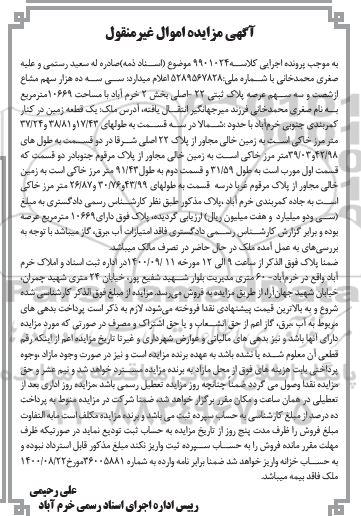 آگهی مزایده اموال غیرمنقول
به موجب پرونده اجرایی کلاسه۹۹۰۱۰۲۴ موضوع (اسناد ذمه)صادره له سعید رستمی و علیه
صغری محمدخانی با شماره ملی:۵۲۸۹۵۶۷۸۲۸ اعلام میدارد: سی سه ده هزار سهم مشاع
ازشصت و سه سهم عرصه پلاک ثبتی ۲۲ -اصلی بخش ۲ خرم آباد با مساحت ۱۰۶۶۹مترمربع
به نام صغری محمدخانی فرزند میرجهانگیر انتقال یافته، آدرس ملک: یک قطعه زمین در کنار
کمربندی جنوبی خرم‌آباد با حدود :شمالا در سه قسمت به طولهای ۱۷/۴۳و ۳۸/۸۱و ۳۷/۲۴
متر مرز خاکی است به زمین خالی مجاور از پلاک ۲۲ اصلی شرقا در دو قسمت به طول های
۴۲/۹۸و ۳۹/۰۳متر مرز خاکی است به زمین خالی مجاور از پلاک مرقوم جنوبادر دو قسمت که
قسمت اول مورب است به طول ۳۱/۵۹ و قسمت دوم به طول۹۱/۴۳ متر مرز خاکی است به زمین
خالی مجاور از پلاک مرقوم غربا درسه قسمت به طولهای ۴۳/۹۹و۳۰/۷۶ و ۲۶/۸۷ متر مرز خاکی
است به جاده کمربندی خرم آباد ،پلاک مذکور طبق نظر کارشناس رسمی دادگستری به مبلغ
(سی ودو میلیارد و هفت میلیون ریال) ارزیابی گردیده، پلاک فوق دارای ۱۰۶۶۹ مترمربع عرصه
بوده و برابر گزارش کارشناس رسمی دادگستری فاقد امتیازات آب ،برق، گاز میباشد با توجه به
بررسی‌های به عمل آمده ملک در حال حاضر در تصرف مالک میباشد.
ضمنا پلاک فوق الذکر از ساعت ۹ الی ۱۲ مورخه ۱۴۰۰/۰۹/۱۱در اداره ثبت اسناد و املاک خرم
آباد واقع در خرم‌آباد- ۶۰ متری مدیریت بلوار شهید شفیع پور، خیابان ۲۴ متری شهید چمران،
خیابان شهید جهان‌آرا، از طریق مزایده به فروش می‌رسد. مزایده از مبلغ فوق الذکر کارشناسی شده
شروع و به بالاترین قیمت پیشنهادی نقدا فروخته می‌شود، لازم به ذکر است پرداخت بدهی های
مربوط به آب ،برق، گاز اعم از حق انشعاب و یا حق اشتراک و مصرف در صورتی که مورد مزایده
دارای آنها باشد و نیز بدهی های مالیاتی و عوارض شهرداری و غیرتا تاریخ مزایده اعم از اینکه رقم
قطعی آن معلوم شده یا نشده باشد به عهده برنده مزایده است و نیز در صورت وجود مازاد ،وجوه
پرداختی بابت هزینه های فوق از محل مازاد به برنده مزایده مسترد خواهد شد و نیم عشر و حق
مزایده نقدا وصول می گردد ضمنا چنانچه روز مزایده تعطیل رسمی باشد ،مزایده روز اداری بعد از
تعطیلی در همان ساعت و مکان مقرر برگزار خواهد شد، ضمنا شرکت در مزایده منوط به پرداخت
ده درصد از مبلغ کارشناسی به حساب سپرده ثبت می باشد و برنده مزایده مکلف است مابه التفاوت
مبلغ فروش را ظرف مدت پنج روز از تاریخ مزایده به حساب ثبت تودیع نماید در صورتیکه ظرف
مهلت مقرر مانده فروش را به حساب سپرده ثبت واریز نکند مبلغ مذکور قابل استرداد نبوده و
به حساب خزانه واریز خواهد شد ضمنا برابر نامه وارده به شماره ۳۶۰۰۵۸۸۱مورخ۱۴۰۰/۰۸/۲۲
ملک فاقد بیمه میباشد.
علی رحیمی
رییس اداره اجرای اسناد رسمی خرم آباد